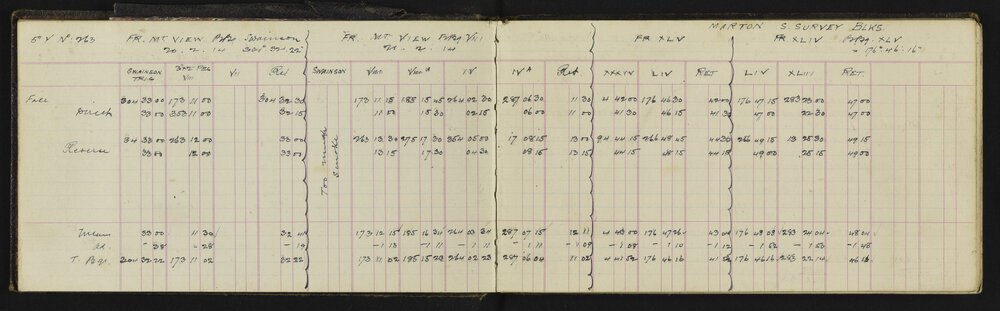 5" Y Nº 263 FR. MT VIEW Swainson FR. MT VIEW VIII MARTON S SURVEY BLKS.
20. 2. 14 304° 32' 22" 21. 2. 14 FR XLV FR XLIV XLV
= 176° 46' 16"
SWAINSON TRIG VII VII Ret SWAINSON VIII VIII A IV IV A Ret XXXIV LIV RET LIV XLIII RET
Face 304 33 00 173 11 00 304 32 30 173 11 15 185 15 45 264 02 30 287 06 30 11 30 4 42 00 176 46 30 42 00 176 47 15 283 23 00 47 00
33 00 353 11 00 32 15 11 00 15 30 02 15 06 00 11 00 41 30 46 15 41 30 47 00 22 30 47 00
Too much smoke
Reverse 34 33 00 263 12 00 33 00 263 13 30 275 17 30 354 05 00 17 08 15 13 00 94 44 15 266 48 45 44 30 266 49 15 13 25 30 49 15
33 00 12 00 33 00 13 15 17 30 04 30 08 15 13 15 44 15 48 15 44 15 49 00 25 15 49 00
Mean 33 00 11 30 32 41 173 12 15 185 16 34 264 03 34 287 07 15 12 11 4 43 00 176 47 26 43 04 176 48 08 283 24 04 48 04
- 38 - 28 - 19 - 1 13 - 1 11 - 1 11 - 1 11 - 1 09 - 1 08 - 1 10 - 1 12 - 1 52 - 1 50 - 1 48
T. Bgs. 304 32 22 173 11 02 32 22 173 11 02 185 15 23 264 02 23 287 06 04 11 02 4 41 52 176 46 16 41 52 176 46 16 283 22 14 46 16